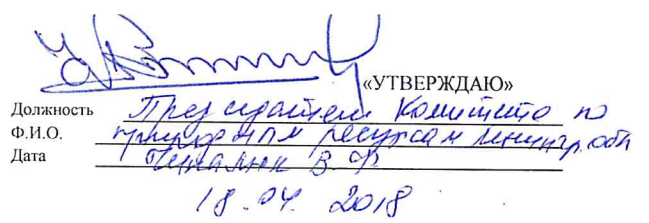 «УТВЕРЖДАЮ»
Должность Председатель Комитета по
Ф.И.О. природным ресурсам Ленингр. обл
Дата В. Ф
18.04.2018